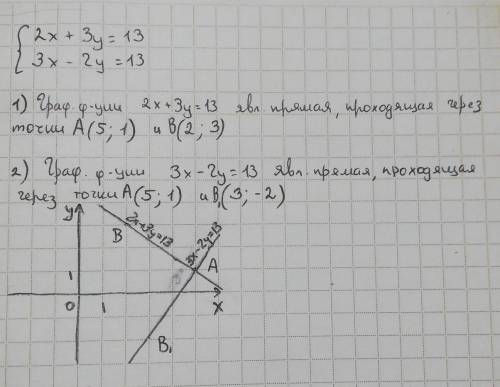 2x + 3y = 13
3x - 2y = 13
1) Граф. ф-ции 2x+3y=13 явл. прямая, проходящая через
точки A(5; 1) и B(2; 3)
2) Граф. ф-ции 3x-2y=13 явл. прямая, проходящая
через точки A(5; 1) и B₁(3; -2)
y
B
2x+3y=13
3x-2y=13
A
1
0
1
x
B₁